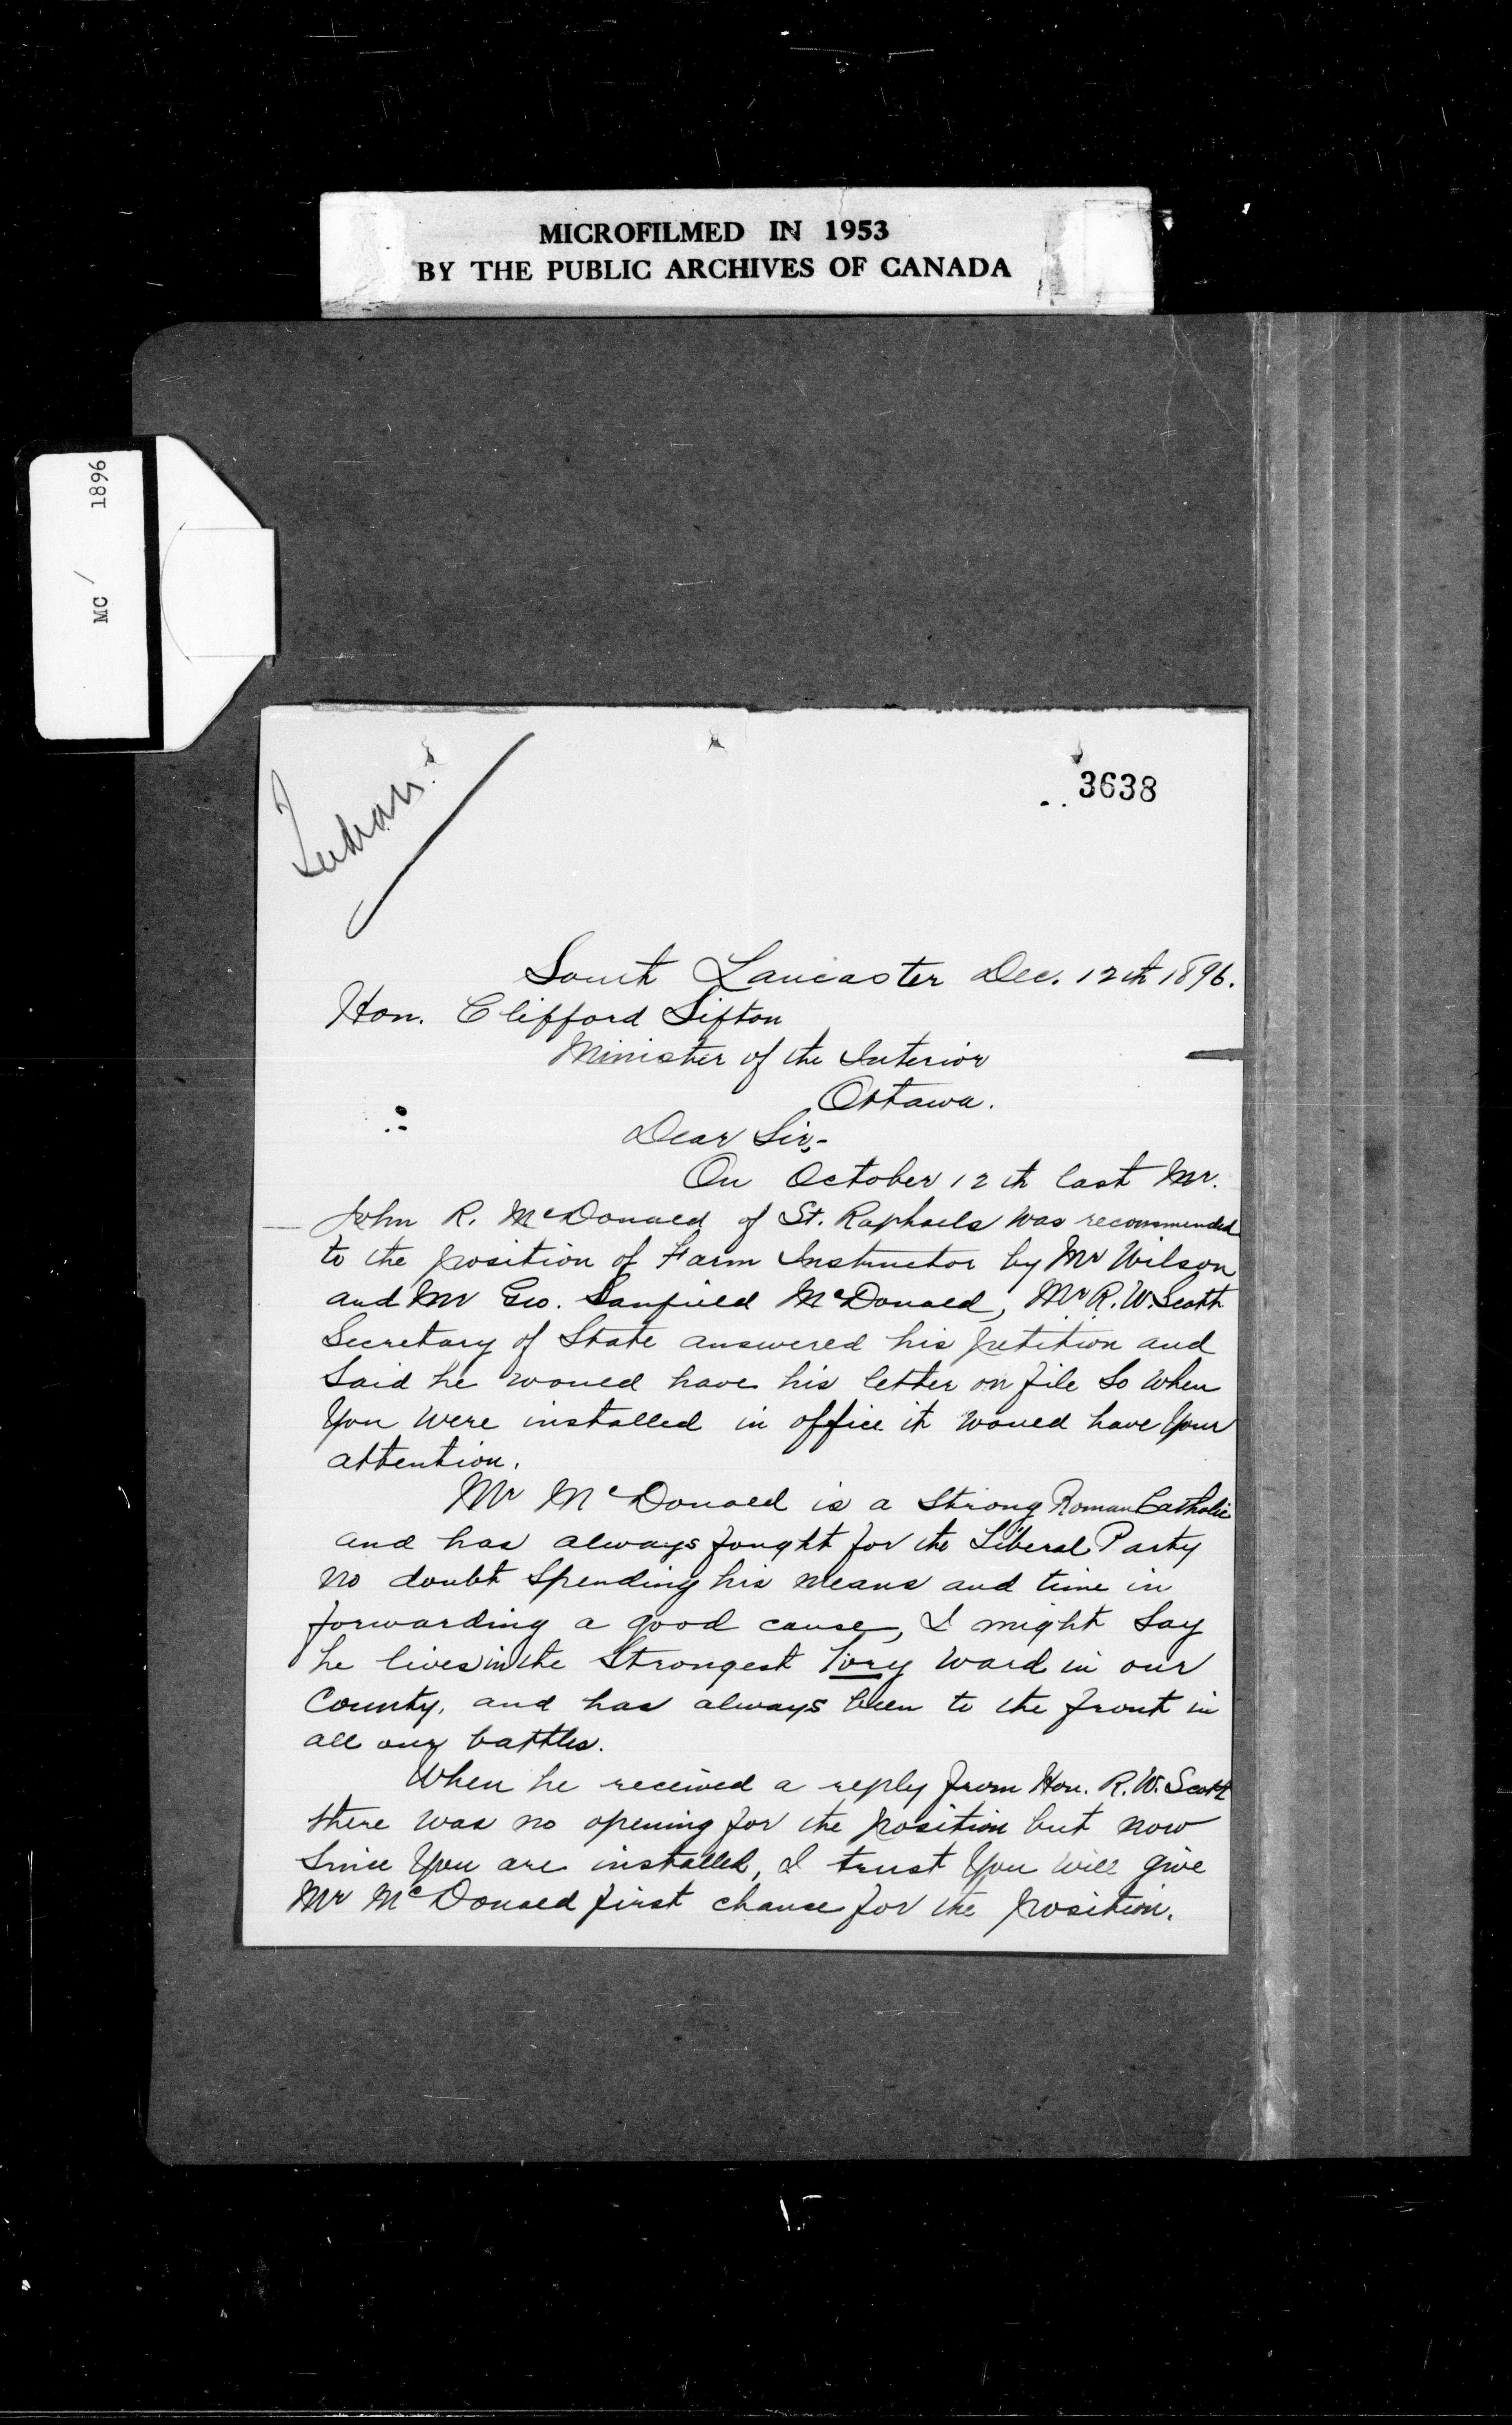 MICROFILMED IN 1953
BY THE PUBLIC ARCHIVES OF CANADA
MC / 1896
Indian
3638
South Lancaster Dec. 12th 1896.
Hon. Clifford Sifton
Minister of the Interior
Ottawa.
Dear Sir,-
On October 12th last Mr.
John R. McDonald of St. Raphaels was recommended
to the position of Farm Instructor by Mr Wilson
and Mr Geo. Sanfield McDonald, Mr R. W. Scott
Secretary of State answered his petition and
Said he would have his letter on file So when
You were installed in office it would have Your
attention.
Mr McDonald is a Strong Roman Catholic
and has always fought for the Liberal Party
no doubt Spending his means and time in
forwarding a good cause, I might Say
he lives in the Strongest Tory Ward in our
County, and has always been to the front in
all our battles.
When he received a reply from Hon. R. W. Scott
there was no opening for the position but now
Since You are installed, I trust You will give
Mr McDonald first chance for the position.